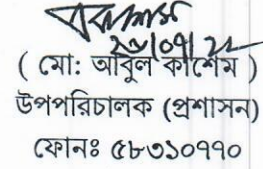 ২৮/০৭/২২
( মো: আবুল কাশেম )
উপপরিচালক (প্রশাসন)
ফোনঃ ৫৮৩১০৭৭০